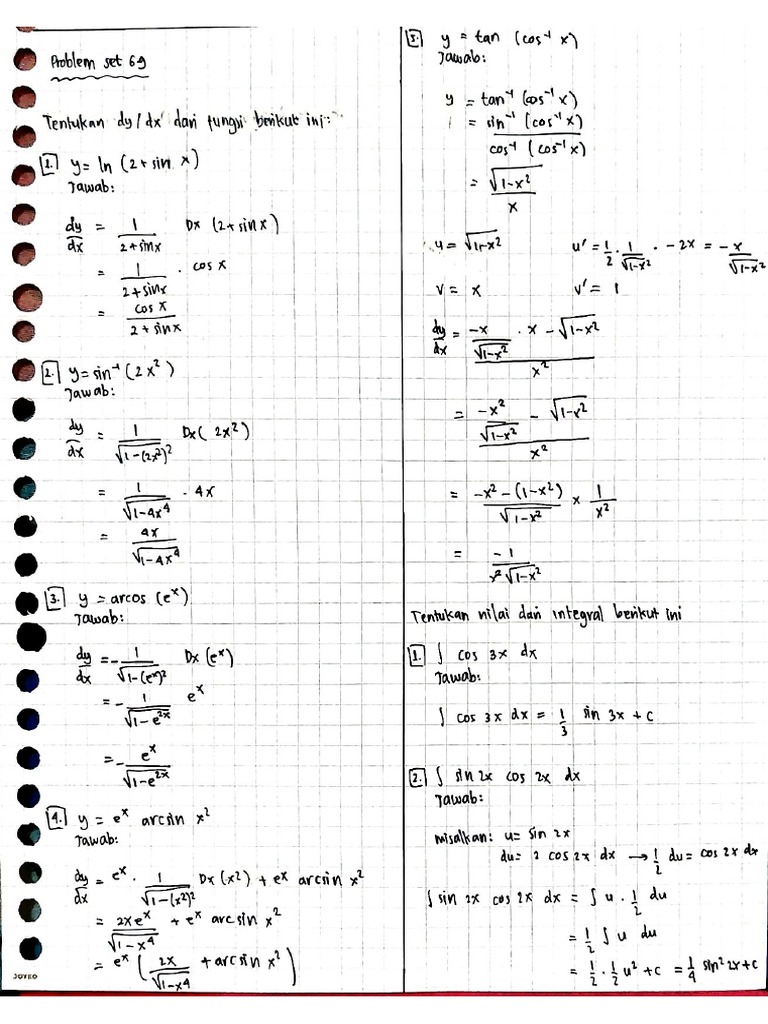 Problem set 6.9
Tentukan dy/dx dari fungsi berikut ini:
1. y = ln (2 + sin x)
Jawab:
dy/dx = 1/(2 + sin x) Dx (2 + sin x)
= 1/(2 + sin x) · cos x
= cos x/(2 + sin x)
2. y = sin⁻¹ (2x²)
Jawab:
dy/dx = 1/√(1-(2x²)²) Dx (2x²)
= 1/√(1-4x⁴) · 4x
= 4x/√(1-4x⁴)
3. y = arcos (eˣ)
Jawab:
dy/dx = - 1/√(1-(eˣ)²) Dx (eˣ)
= - 1/√(1-e²ˣ) eˣ
= - eˣ/√(1-e²ˣ)
4. y = eˣ arcsin x²
Jawab:
dy/dx = eˣ · 1/√(1-(x²)²) Dx (x²) + eˣ arcsin x²
= 2xeˣ/√(1-x⁴) + eˣ arc sin x²
= eˣ (2x/√(1-x⁴) + arc sin x²)
JOYKO
5. y = tan (cos⁻¹ x)
Jawab:
y = tan⁻¹ (cos⁻¹ x)
= sin⁻¹ (cos⁻¹ x)/cos⁻¹ (cos⁻¹ x)
= √(1-x²)/x
u = √(1-x²) u' = 1/2 · 1/√(1-x²) · -2x = -x/√(1-x²)
v = x v' = 1
dy/dx = (-x/√(1-x²) · x - √(1-x²))/x²
= (-x²/√(1-x²) - √(1-x²))/x²
= (-x² - (1-x²))/√(1-x²) × 1/x²
= -1/(x²√(1-x²))
Tentukan nilai dari integral berikut ini
1. ∫ cos 3x dx
Jawab:
∫ cos 3x dx = 1/3 sin 3x + c
2. ∫ sin 2x cos 2x dx
Jawab:
misalkan: u = sin 2x
du = 2 cos 2x dx → 1/2 du = cos 2x dx
∫ sin 2x cos 2x dx = ∫ u · 1/2 du
= 1/2 ∫ u du
= 1/2 · 1/2 u² + c = 1/4 sin² 2x + c